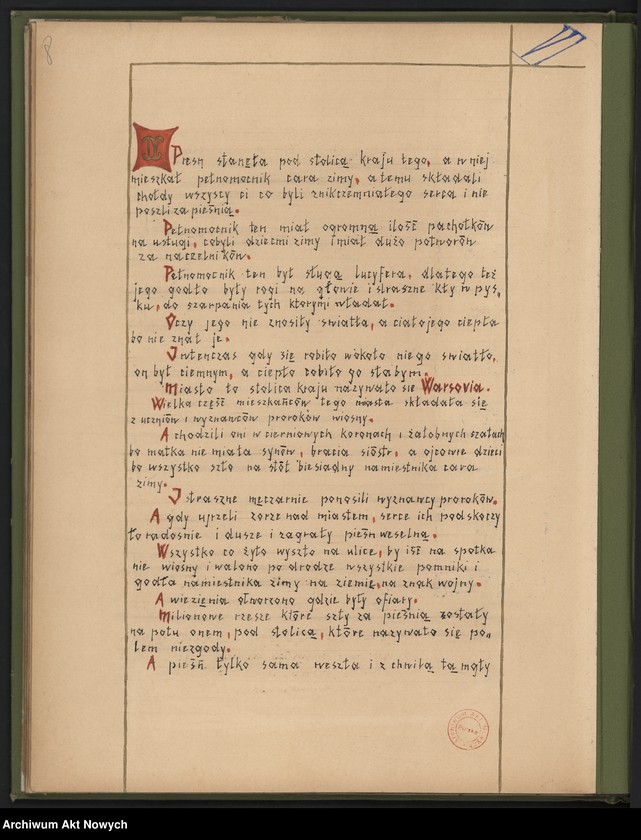 8
VI
IV
Piesn stanęła pod stolicą kraju tego, a w niej
mieszkał pełnomocnik cara zimy, a temu składali
chołdy wszyscy ci co byli znikczemniałego serca i nie
poszli za pieśnią.
Pełnomocnik ten miał ogromną ilość pachołków
na usługi, cobyli dziecmi zimy i miał dużo potworów
za naczelników.
Pełnomocnik ten był sługą lucyfera, dlatego też
jego godło były rogi na głowie i straszne kły w pys,
ku, do szarpania tych ktorymi władał.
Oczy jego nie znosiły swiatła, a ciało jego ciepła
bo nie znał je.
I wtenczas gdy się robiło wókoło niego swiatło,
on był ciemnym, a ciepło robiło go słabym.
Miasto to stolica kraju nazywało sie Warsovia.
Wielka część mieszkańców tego miasta składała się
z uczniów i wyznanców proroków wiosny.
A chodzili oni w cierniowych koronach i żałobnych szatach
bo matka nie miała synów, bracia sióstr, a ojcowie dzieci
bo wszystko szło na stół biesiadny namiestnika cara
zimy.
I straszne męczarnie ponosili wyznawcy proroków.
A gdy ujrzeli zorze nad miastem, serce ich podskoczy
ło radośnie i dusze i zagrały pieśn weselną.
Wszystko co żyło wyszło na ulice, by iść na spotka
nie wiosny i walono po drodze wszystkie pomniki i
godła namiestnika zimy na ziemię, na znak wojny.
A wiezienia otworzono gdzie były ofiary.
Milionowe rzesze które szły za pieśnią zostały
na polu onem, pod stolicą, które nazywało się po„
lem niezgody.
A pieśń tylko sama weszła i z chwilą tą mgły
Archiwum Akt Nowych